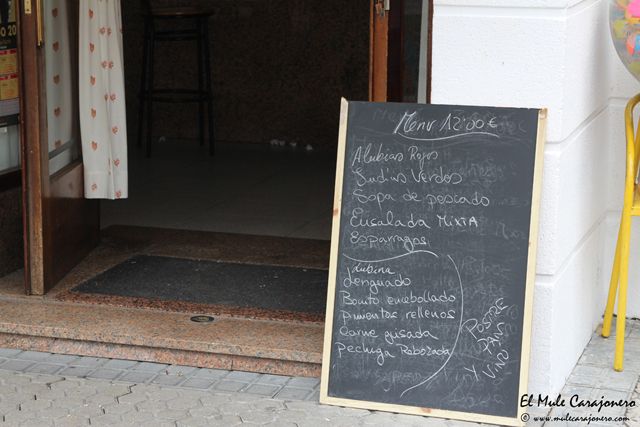 Menu 12'00 €
Alubias Rojas
Judias Verdes
Sopa de pescado
Ensalada MixTA
Esparragos
Lubina
Lenguado
Bonito encebollado
Pimientos rellenos
Carne guisada
Pechuga Rebozada
POSTRE
PAN
Y VINO
El Mule Carajonero
© www.mulecarajonero.com